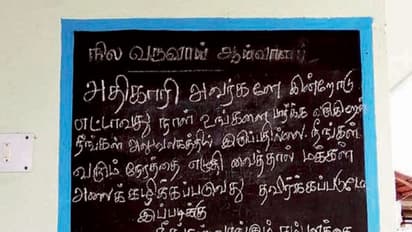 நில வருவாய் ஆய்வாளர்
அதிகாரி அவர்களே இன்றோடு
எட்டாவது நாள் உங்களை பார்க்க
நீங்கள் அலுவலகத்தில் இருப்பதில்லை. நீங்கள்
வரும் நேரத்தை எழுதி வைத்தால் மக்கள்
அலைக்கழிக்கப்படுவது தவிர்க்கப்படுமே
இப்படிக்கு